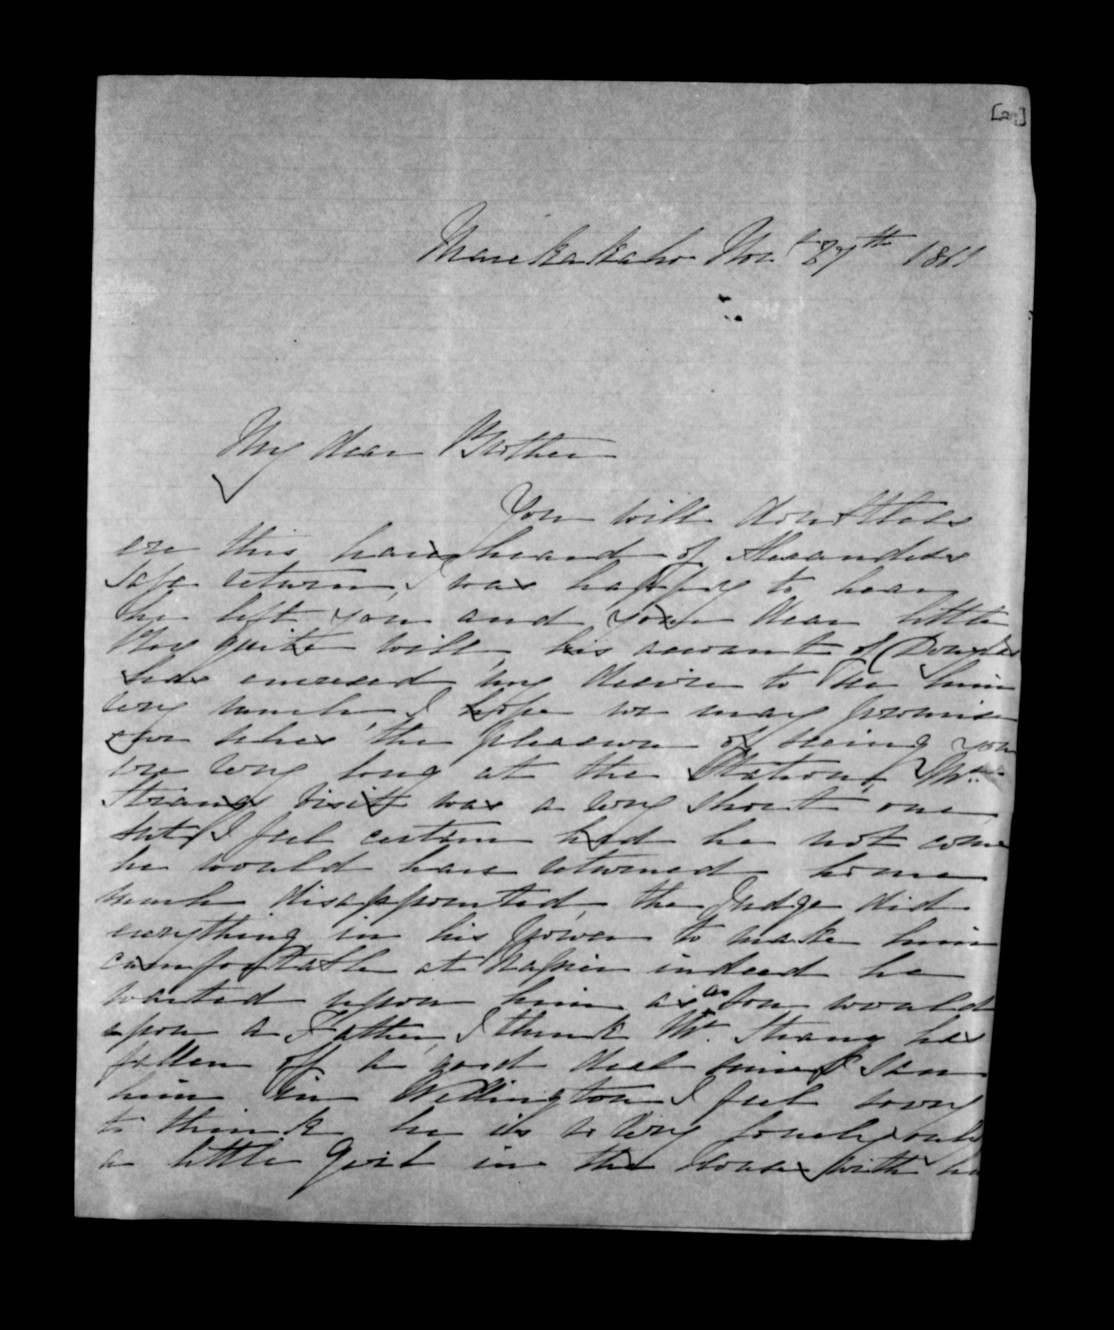 Maraekakaho Nov 27th 1861
My dear Brother
You will doubtless
ere this have heard of Alexanders
safe return, I was happy to hear
he left you and your dear little
Boy quite well, his account of
has increased my desire to see him
very much, I hope we may promise
the pleasure of seeing you
ere very long at the Station, Mr
Strangs visit was a very short one,
but I feel certain had he not come
he would have returned home
much disappointed, the Judge did
everything in his power to make him
comfortable at Napier indeed he
waited upon him as a son would
upon a Father, I think Mr. Strang has
fallen off a good deal since I saw
him in Wellington I feel sorry
to think he is so very lonely only
a little Girl in the house with him